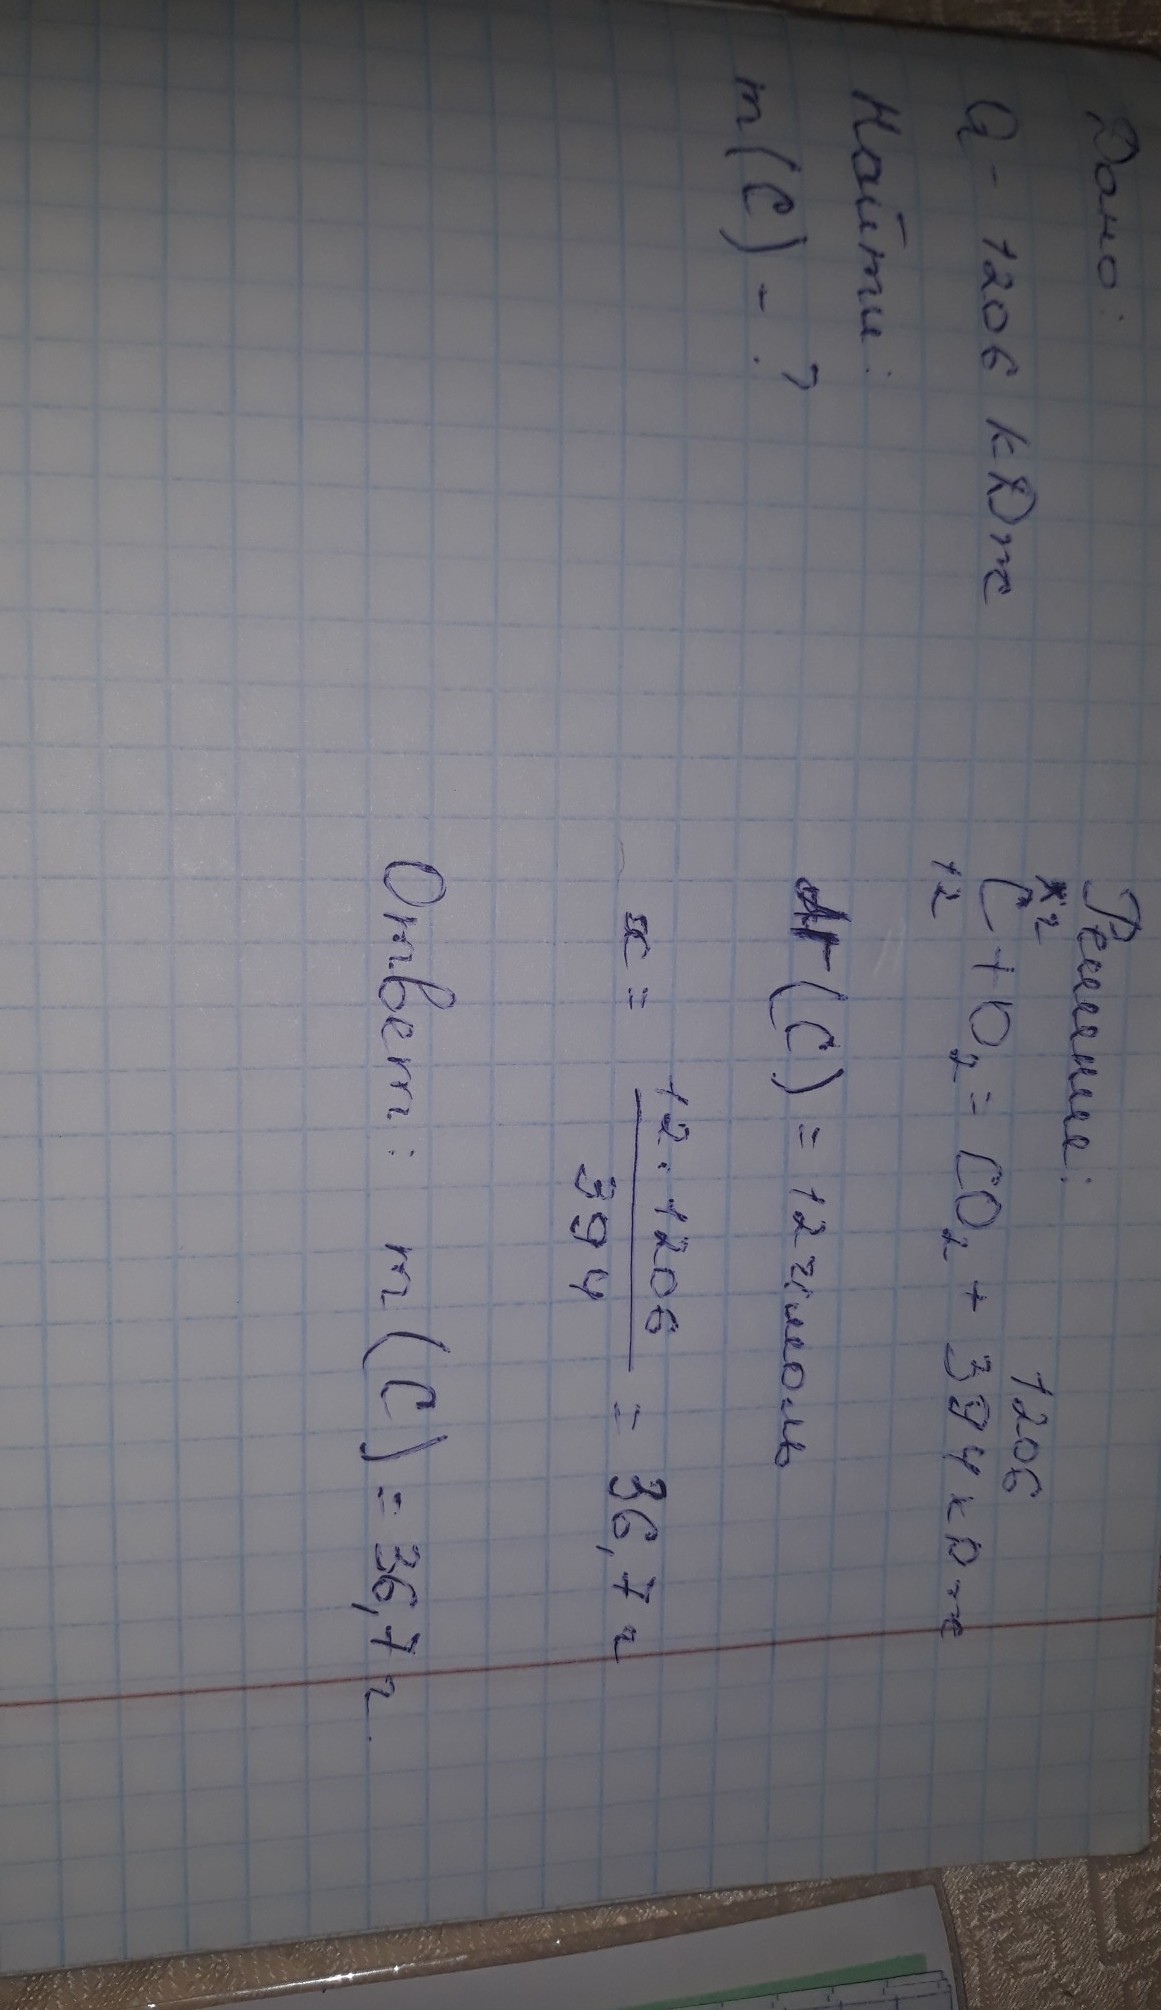 Дано:
Q - 1206 кДж
Найти:
m(C) - ?
Решение:
xг 1206
C + O₂ = CO₂ + 394 кДж
12
Ar(C) = 12 г/моль
x = 12·1206 / 394 = 36,7 г
Ответ: m(C) = 36,7 г.